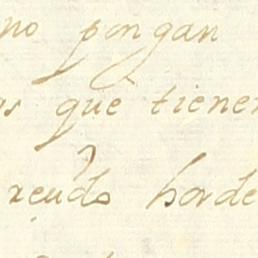 no pongan
as que tienen
reudo horde